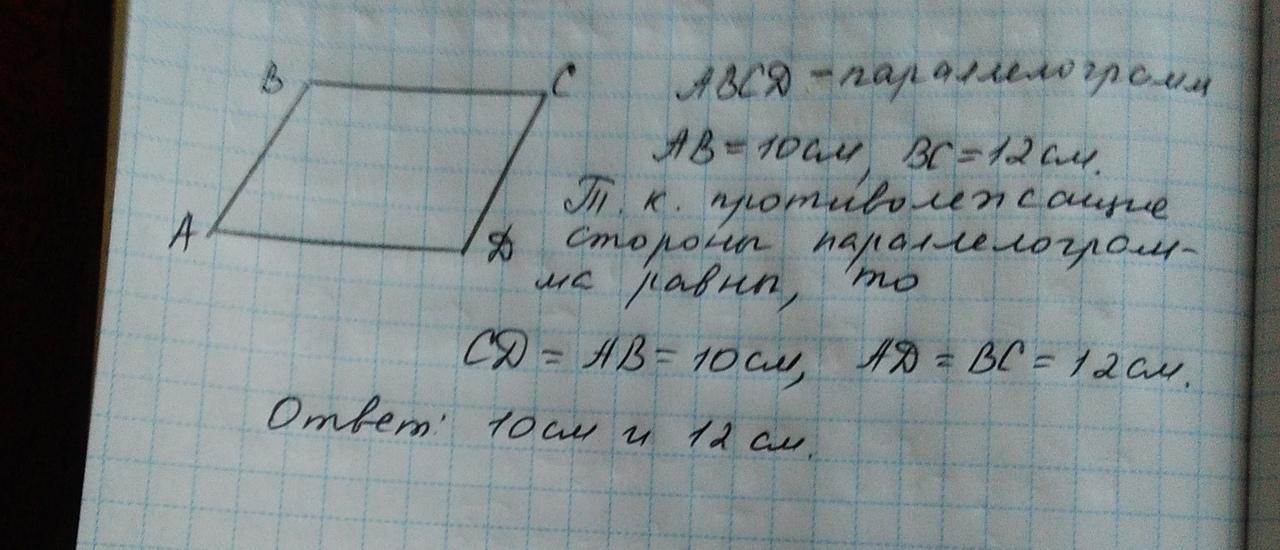 B
C
A
D
ABCD - параллелограмм
AB = 10 см, BC = 12 см.
Т. к. противолежащие
стороны параллелограм-
ма равны, то
CD = AB = 10 см, AD = BC = 12 см.
Ответ: 10 см и 12 см.